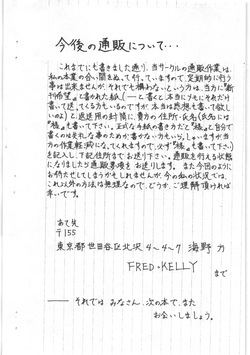 今後の通販について・・・
これまでにも書きました通り、当サークルの通販作業は、
私の本業の合い間をぬって行っていますので、定期的に行う
事は出来ませんが、それでも構わないという方は、当方に『新
刊希望』と書かれた紙(――と書くと、本当にソレにそれだけ
書いて送ってくる方もいるのですが、本当は感想も書いて欲し
いのよ)と返送用の封筒に、貴方の住所・氏名(氏名には
『様』も書いて下さい。正式な手紙の書き方だと『様』と自分で
書くのは失礼な事のためか書かない方もいらっしゃいますが当
方の作業軽減になってくれますので、必ず『様』も書いて下さい)
を記入し、下記住所までお送り下さい。通販を行える状態
になりましたら通販要項をお送りします。また今回のように
お待たせしてしまうかもしれませんが、今の私の状況では、
これ以外の方法は無理なので、どうか、ご理解頂ければ
幸いです。
あて先
〒155
東京都世田谷区北沢4〜4〜7 海野 方
FRED・KELLY
まで
―― それでは みなさん、次の本で、また
お会いしましょう。